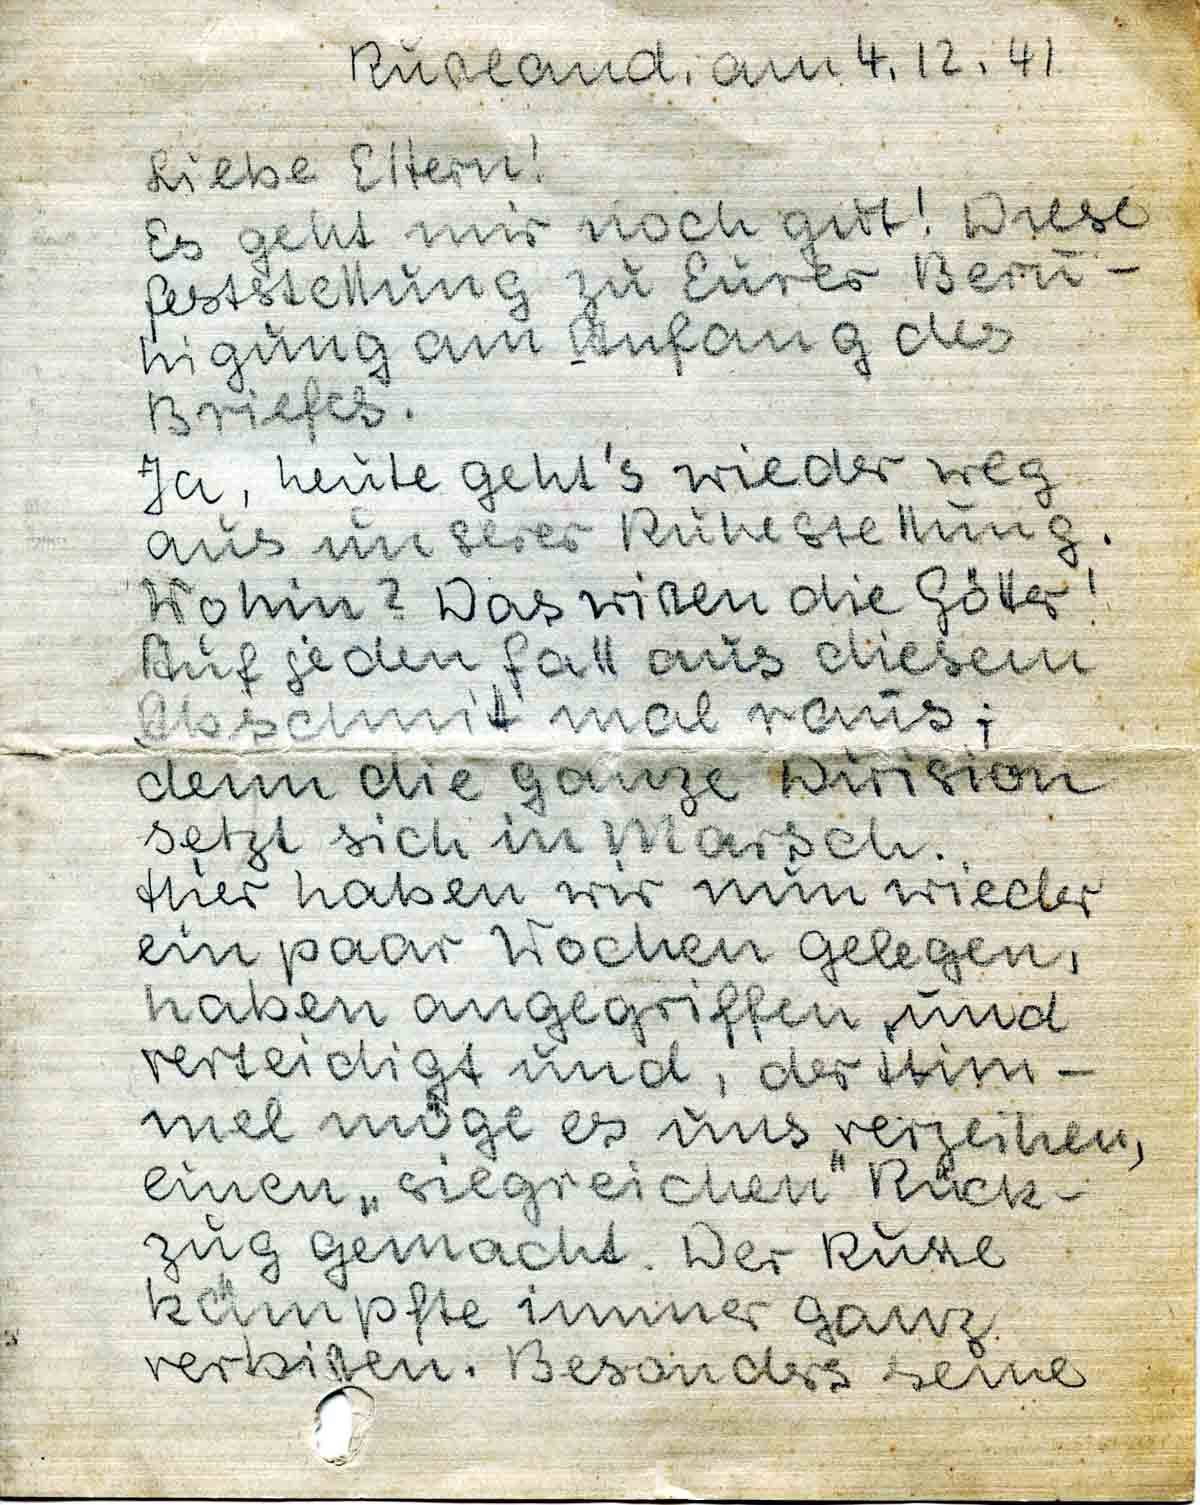 Russland, am 4.12.41
Liebe Eltern!
Es geht mir noch gut! Diese
Feststellung zu Eurer Beru-
higung am Anfang des
Briefes.
Ja, heute geht's wieder weg
aus unserer Ruhestellung.
Wohin? Das wissen die Götter!
Auf jeden Fall aus diesem
Abschnitt mal raus;
denn die ganze Division
setzt sich in Marsch.
Hier haben wir nun wieder
ein paar Wochen gelegen,
haben angegriffen und
verteidigt und, der Him-
mel möge es uns verzeihen,
einen „siegreichen" Rück-
zug gemacht. Der Russe
kämpfte immer ganz
verbissen. Besonders seine